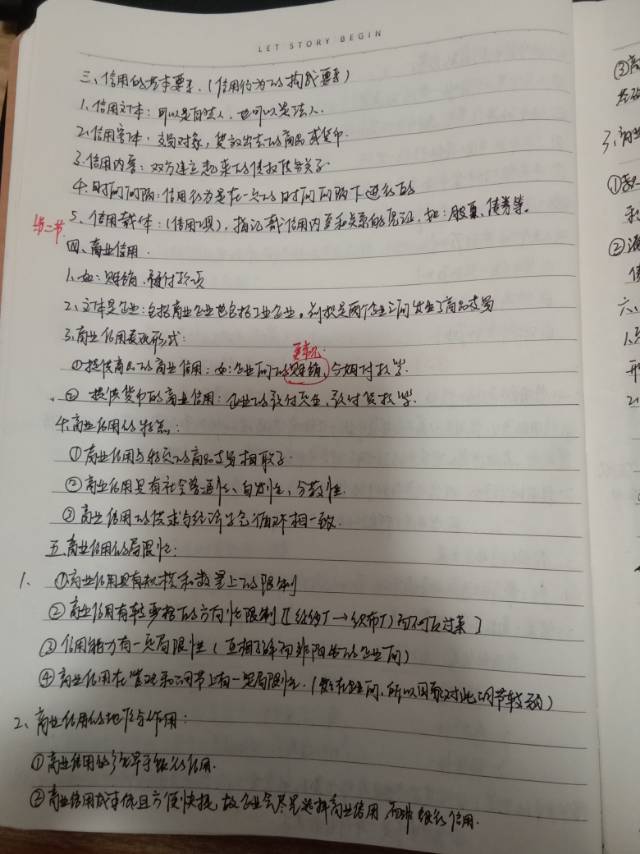 LET STORY BEGIN
三、信用的基本要素.(信用行为的构成要素)
1.信用主体:可以是自然人,也可以是法人.
2.信用客体:交易对象,贷放出去的商品或货币.
3.信用内容:双方建立起来的债权债务关系
4.时间间隔:信用行为是在一定的时间间隔下进行的
第二节 5、信用载体:(信用工具),指记载信用内容和关系的凭证,如:股票、债券等。
四、商业信用.
1.如:赊销、预付款项
2、主体是企业:包括商业企业也包括工业企业。前提是两个企业之间发生了商品交易
3.商业信用表现形式:
①提供商品的商业信用:如:企业间的赊销、分期付款等.
②提供货币的商业信用:企业的预付定金,预付货款等.
4.商业信用的特点:
①商业信用与特定的商品交易相联系.
②商业信用具有社会普遍性、自发性,分散性.
③商业信用的供求与经济生产循环相一致.
五.商业信用的局限性:
1. ①商业信用具有规模和数量上的限制
②商业信用有较严格的方向性限制[纺纱厂→织布厂而不可反过来]
③信用能力有一定局限性(互相了解而非陌生的企业间)
④商业信用在管理和调节上有一定局限性.(发生在企业间,所以国家对此调节较弱)
2、商业信用的地位与作用:
①商业信用的产生早于银行信用.
②商业信用成本低且方便快捷,故企业会尽量选择商业信用而非银行信用.